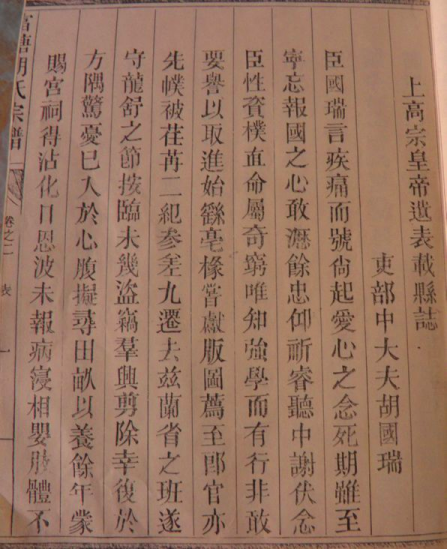 上高宗皇帝遺表載縣誌
吏部中大夫胡國瑞
臣國瑞言疾痛而號尙起愛心之念死期雖至
寧忘報國之心敢瀝餘忠仰祈睿聽中謝伏念
臣性資樸直命屬奇窮唯知強學而有行非敢
要譽以取進始繇亳椽嘗獻版圖薦至郎官亦
先幞被荏苒二紀叅差九遷去兹蘭省之班遂
守龍舒之節按臨未幾盜竊羣興剪除幸復於
方隅驚憂已入於心腹擬尋田畝以養餘年蒙
賜宮祠得沾化日恩波未報病寖相嬰肢體不
富塘胡氏宗譜
卷之二
表
一